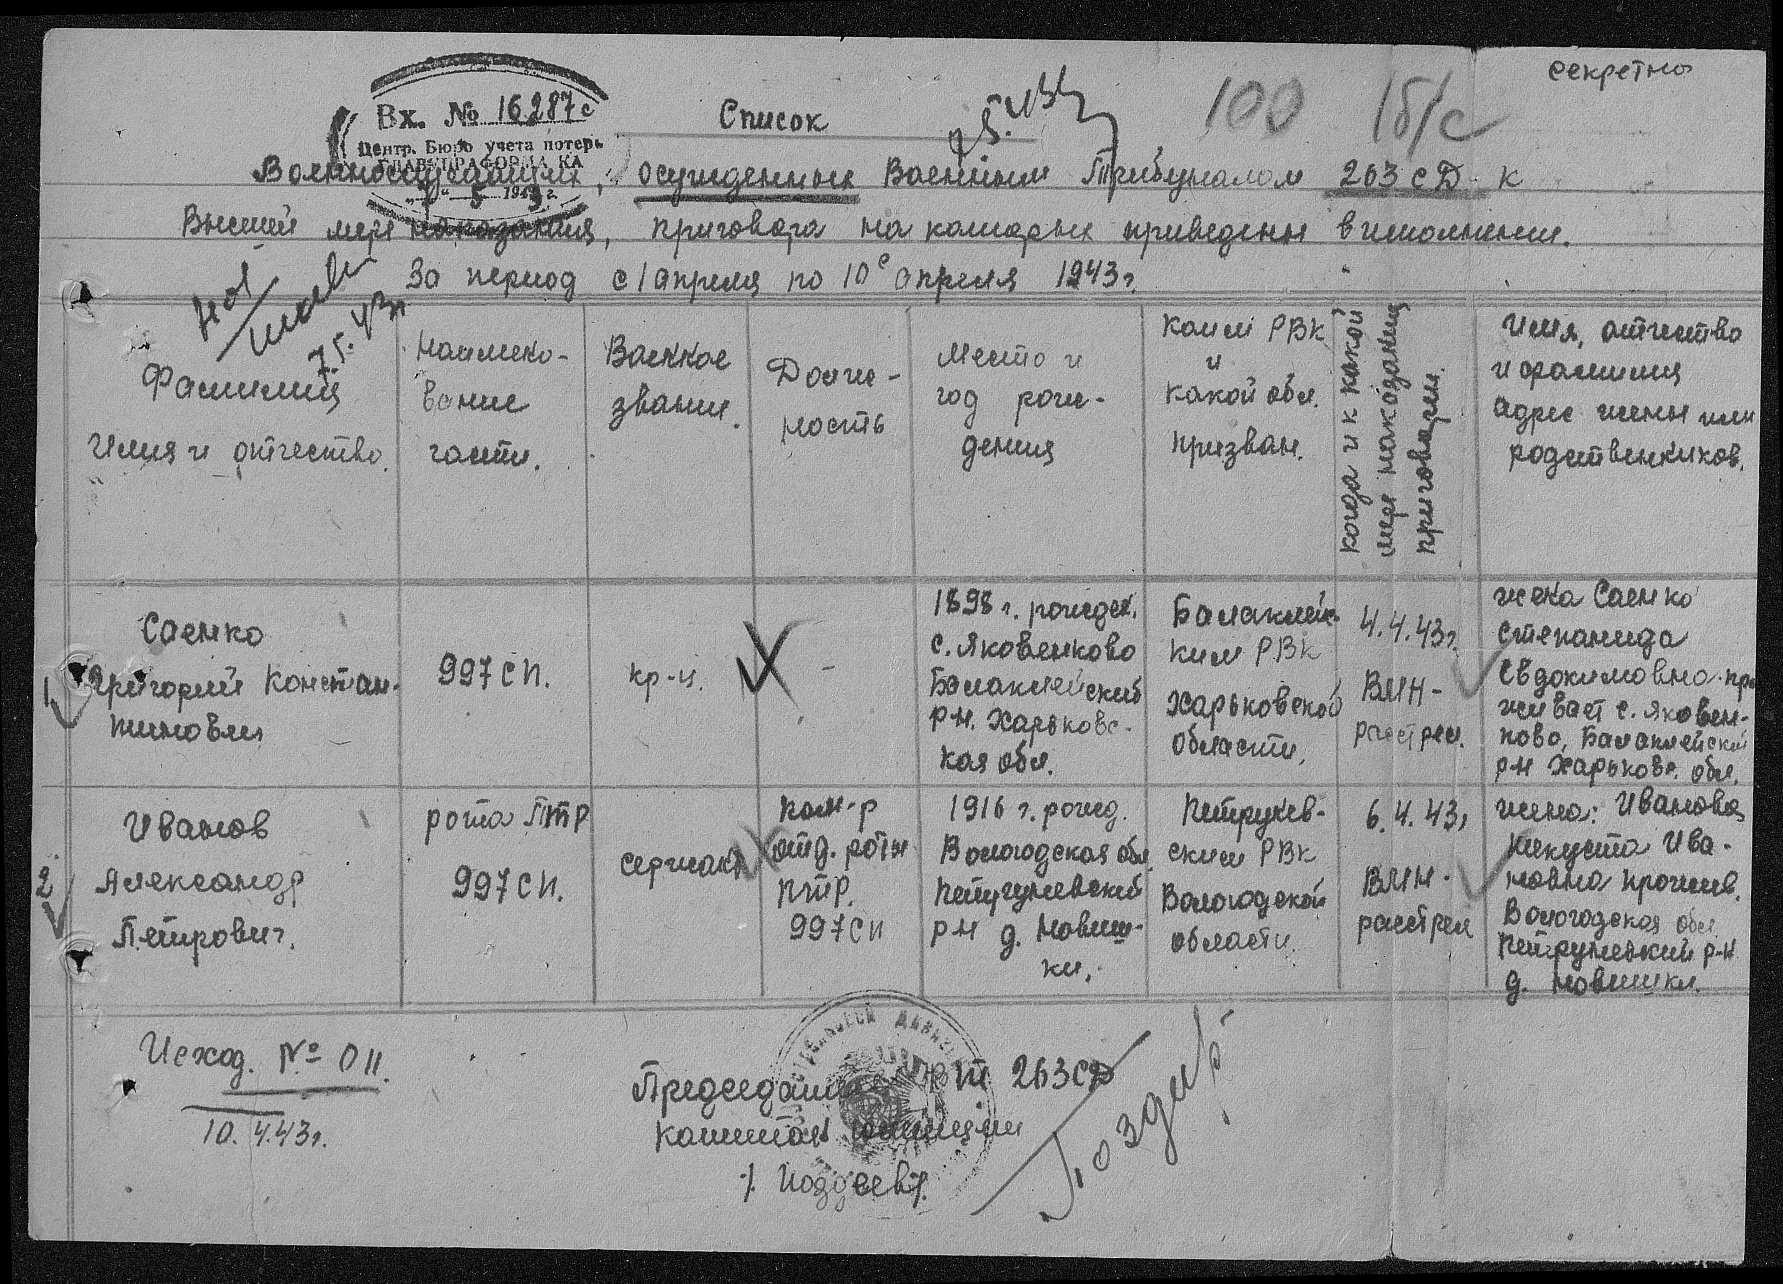 секретно
Вх. № 16287с
Центр. Бюро учета потерь
ГЛАВУПРАФОРМА КА
5 1943 г.
100
1б/с
Список
Военнослужащих, осужденных Военным Трибуналом 263 сД к
Высшей мере наказания, приговора на которых приведены в исполнение.
За период с 1 апреля по 10е апреля 1943 г.
7.5.43г
Фамилия
Имя и отчество.
Наимено-
вание
части.
Военное
звание.
Долж-
ность
Место и
год рож-
дения
Каким РВК
и
какой обл.
призван.
Когда и к какой
мере наказания
приговорен.
Имя, отчество
и фамилия
адрес жены или
родственников.
1.
Саенко
Григорий Констан-
тинович
997 СП.
кр-ц.
-
1898 г. рожден.
с. Яковенково
Балаклейский
р-н. Харьковс-
кая обл.
Балаклейс-
ким РВК
Харьковской
области.
4.4.43г.
ВМН-
расстрел.
жена Саенко
Степанида
Евдокимовна-про
живает с. Яковен-
ково, Балаклейский
р-н Харьков. обл.
2
Иванов
Александр
Петрович.
рота ПТР
997 СП.
сержант
ком-р
отд. роты
ПТР.
997 СП
1916 г. рожд.
Вологодская обл
р-н д. Новиш-
ки.
ским РВК
Вологодской
области.
6.4.43г
ВМН-
расстрел
жена: Иванова
Ива-
новна прожив.
Вологодская обл.
р-н
д. Новишки.
Исход. № 011.
10.4.43г.
Председатель ВТ 263 сД
капитан юстиции
/. Поздеев /.
Поздеев